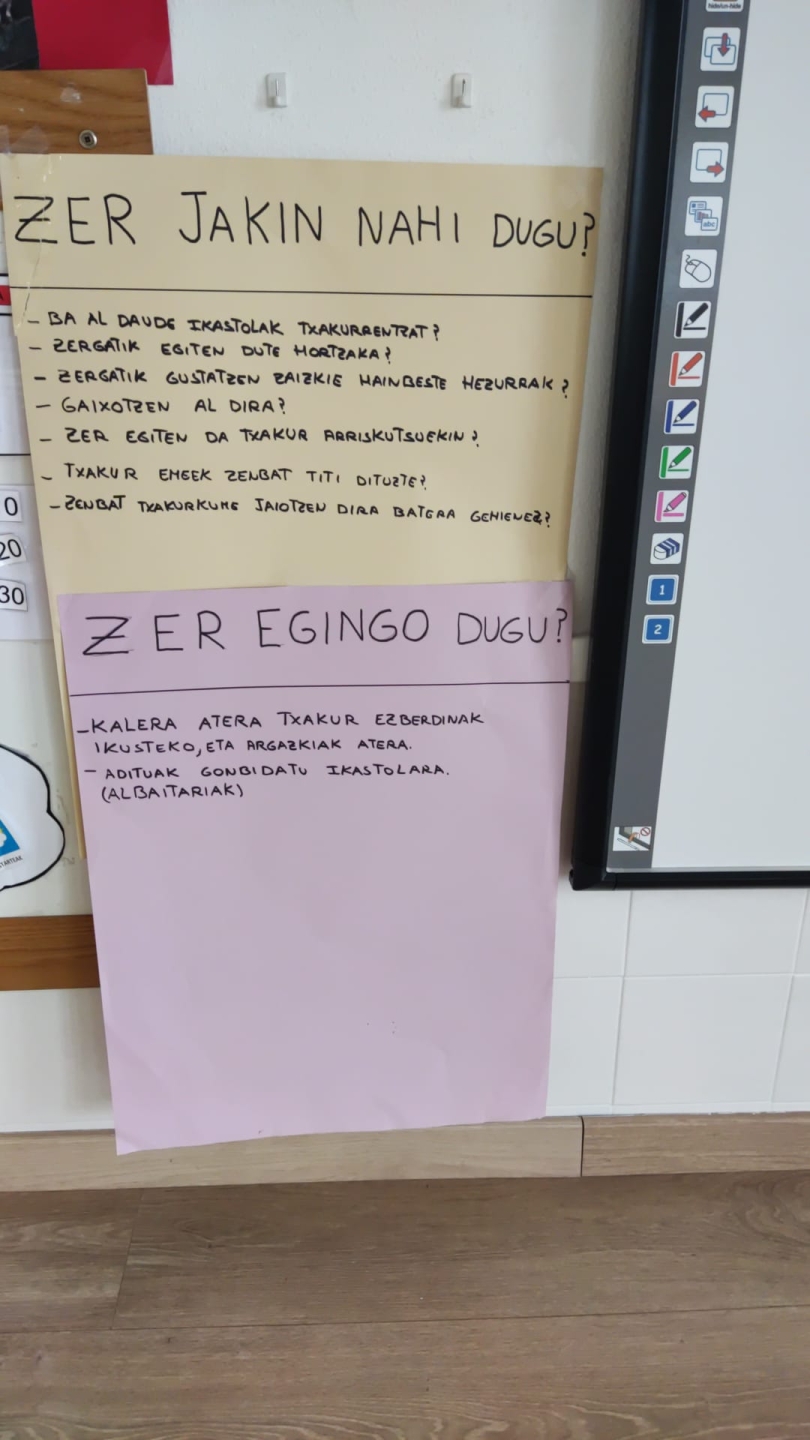 ZER JAKIN NAHI DUGU?
- BA AL DAUDE IKASTOLAK TXAKURRENTZAT?
- ZERGATIK EGITEN DUTE HORTZAKA?
- ZERGATIK GUSTATZEN ZAIZKIE HAINBESTE HEZURRAK?
- GAIXOTZEN AL DIRA?
- ZER EGITEN DA TXAKUR ARRISKUTSUEKIN?
- TXAKUR EMEEK ZENBAT TITI DITUZTE?
- ZENBAT TXAKURKUME JAIOTZEN DIRA BATERA GEHIENEZ?
ZER EGINGO DUGU?
- KALERA ATERA TXAKUR EZBERDINAK
IKUSTEKO, ETA ARGAZKIAK ATERA.
- ADITUAK GONBIDATU IKASTOLARA.
(ALBAITARIAK)
0
20
30
abc
1
2